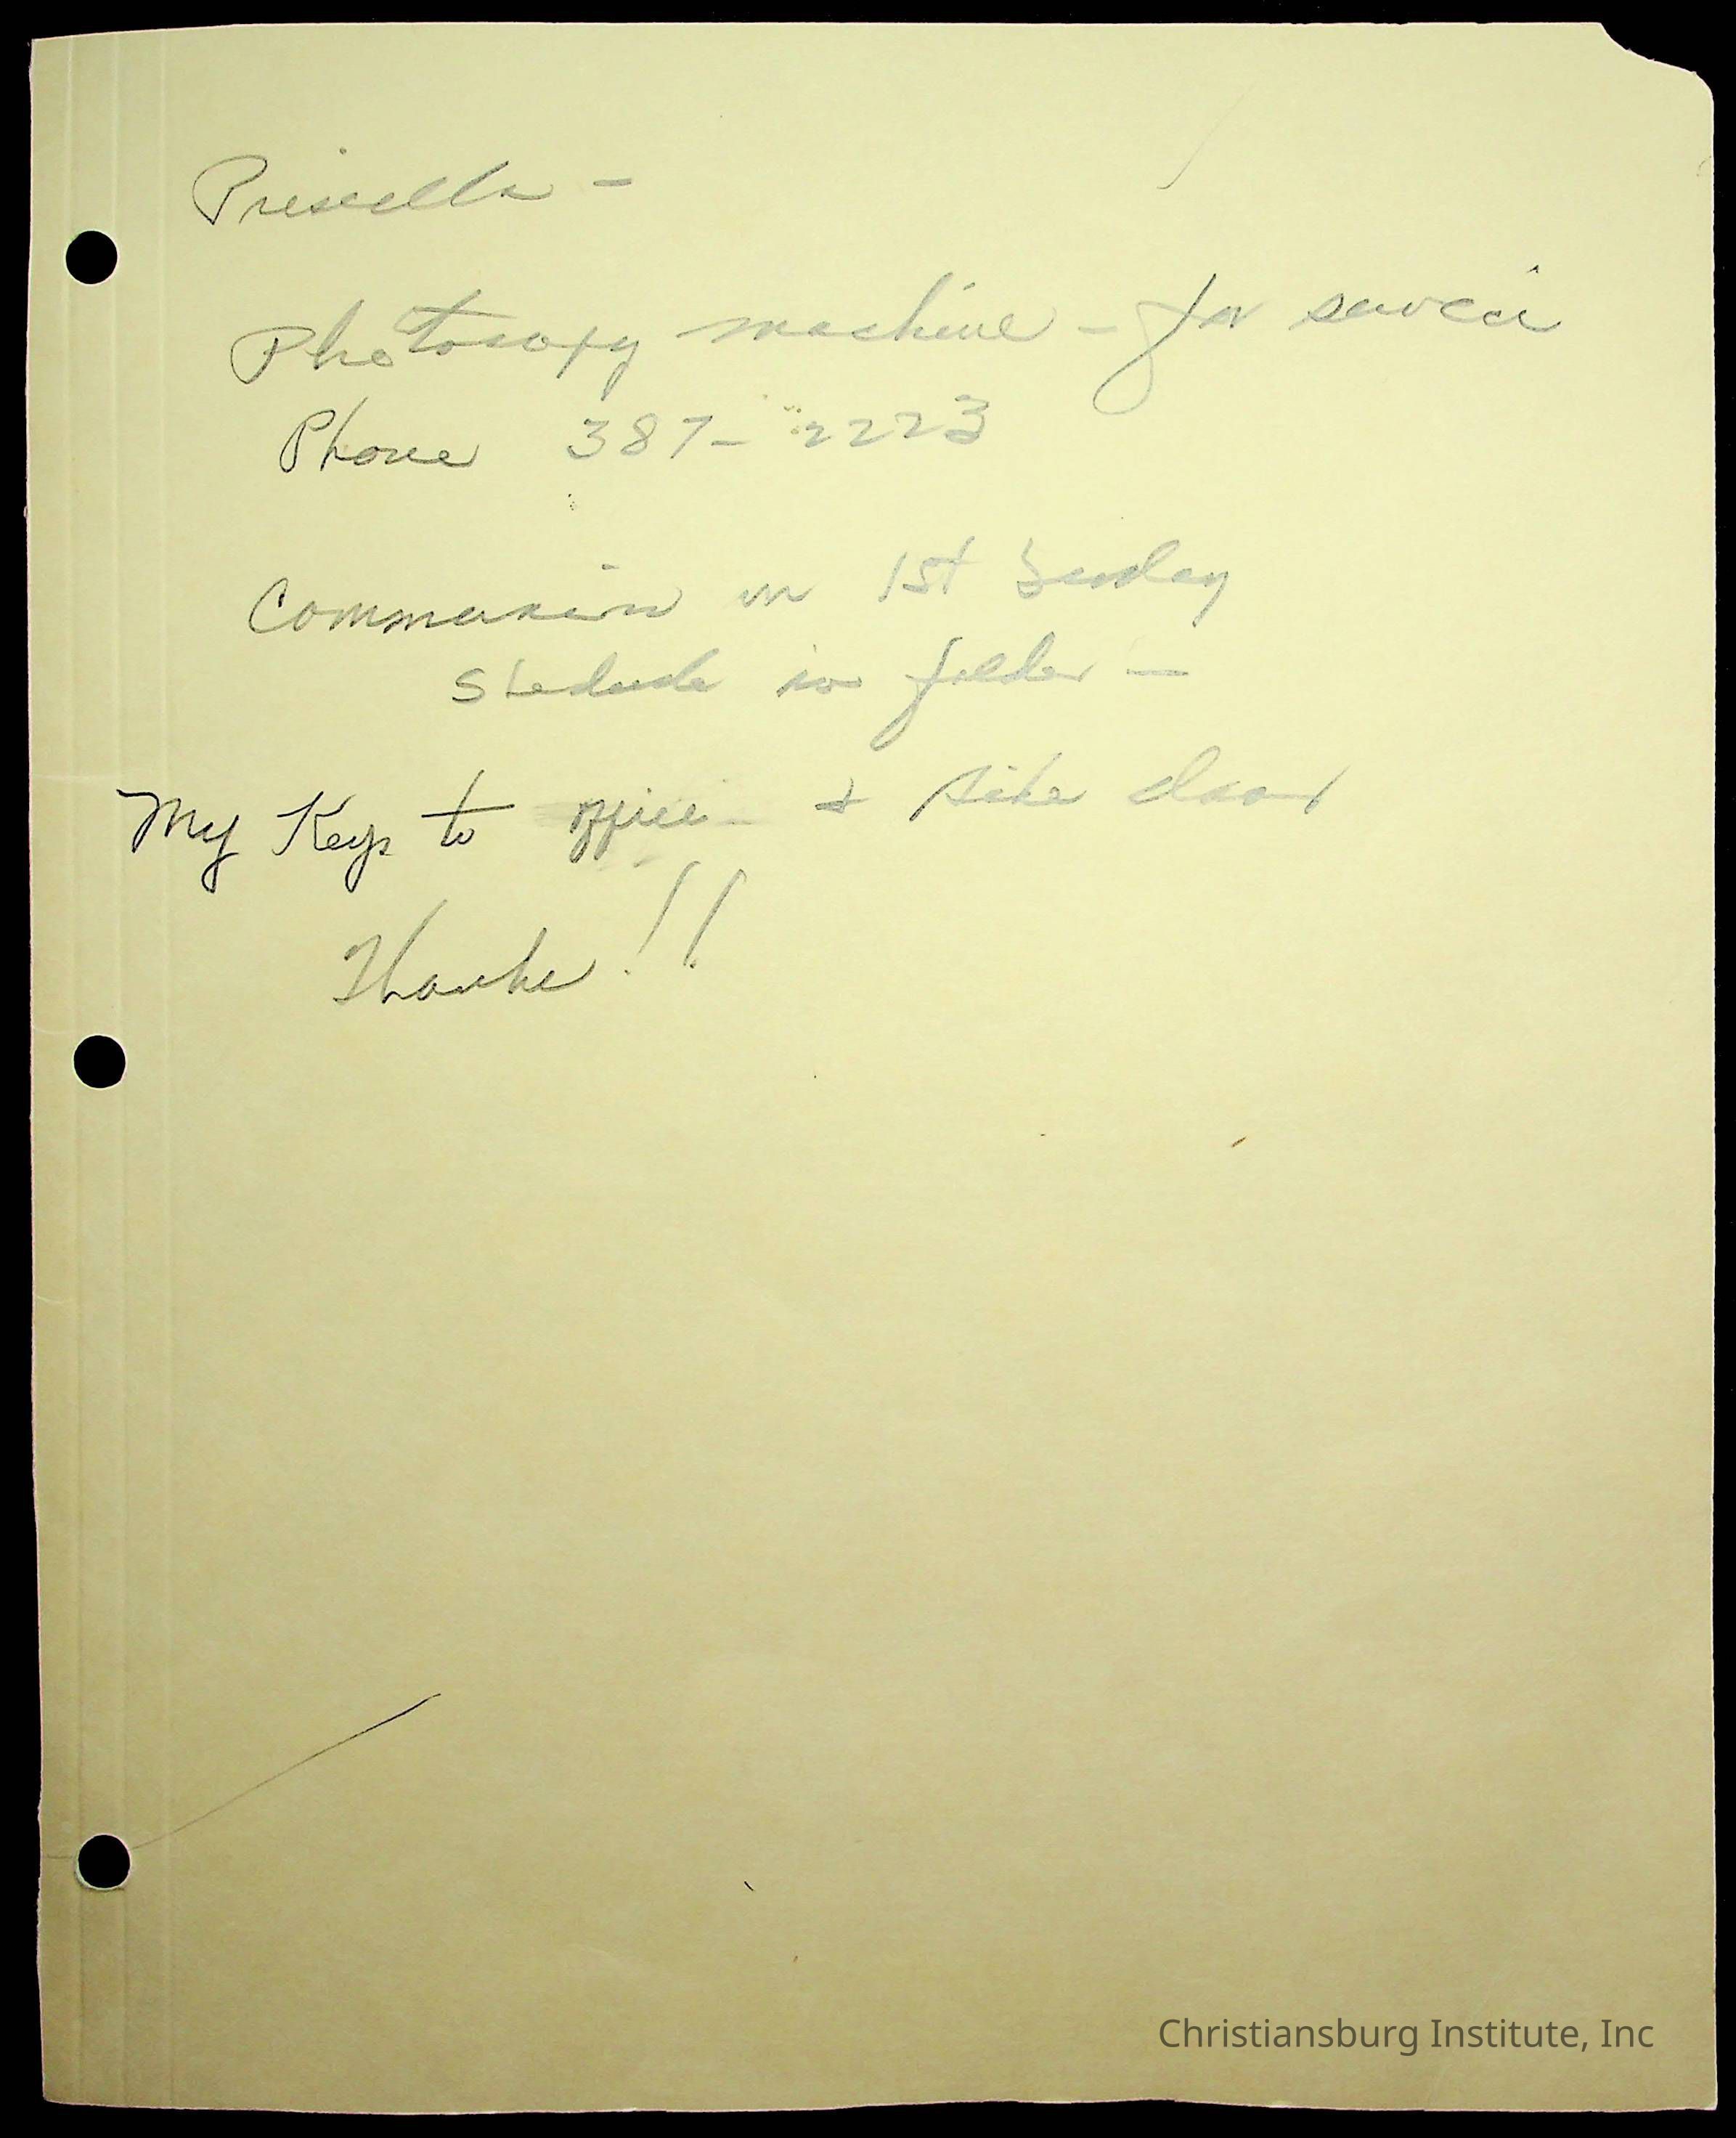 Priscilla -
Photocopy machine - for service
Phone 387-2223
Communion on 1st Sunday
Schedule in folder -
My Keys to office - & side door
Thanks!!
Christiansburg Institute, Inc